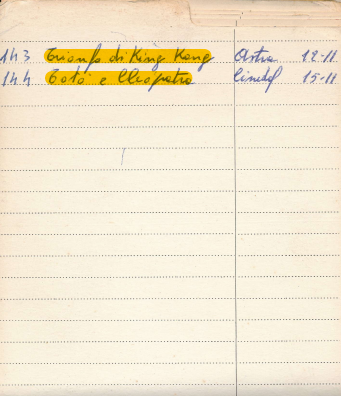 143 Trionfo di King Kong Astra 12-11
144 Totò e Cleopatra Cinedel 15-11